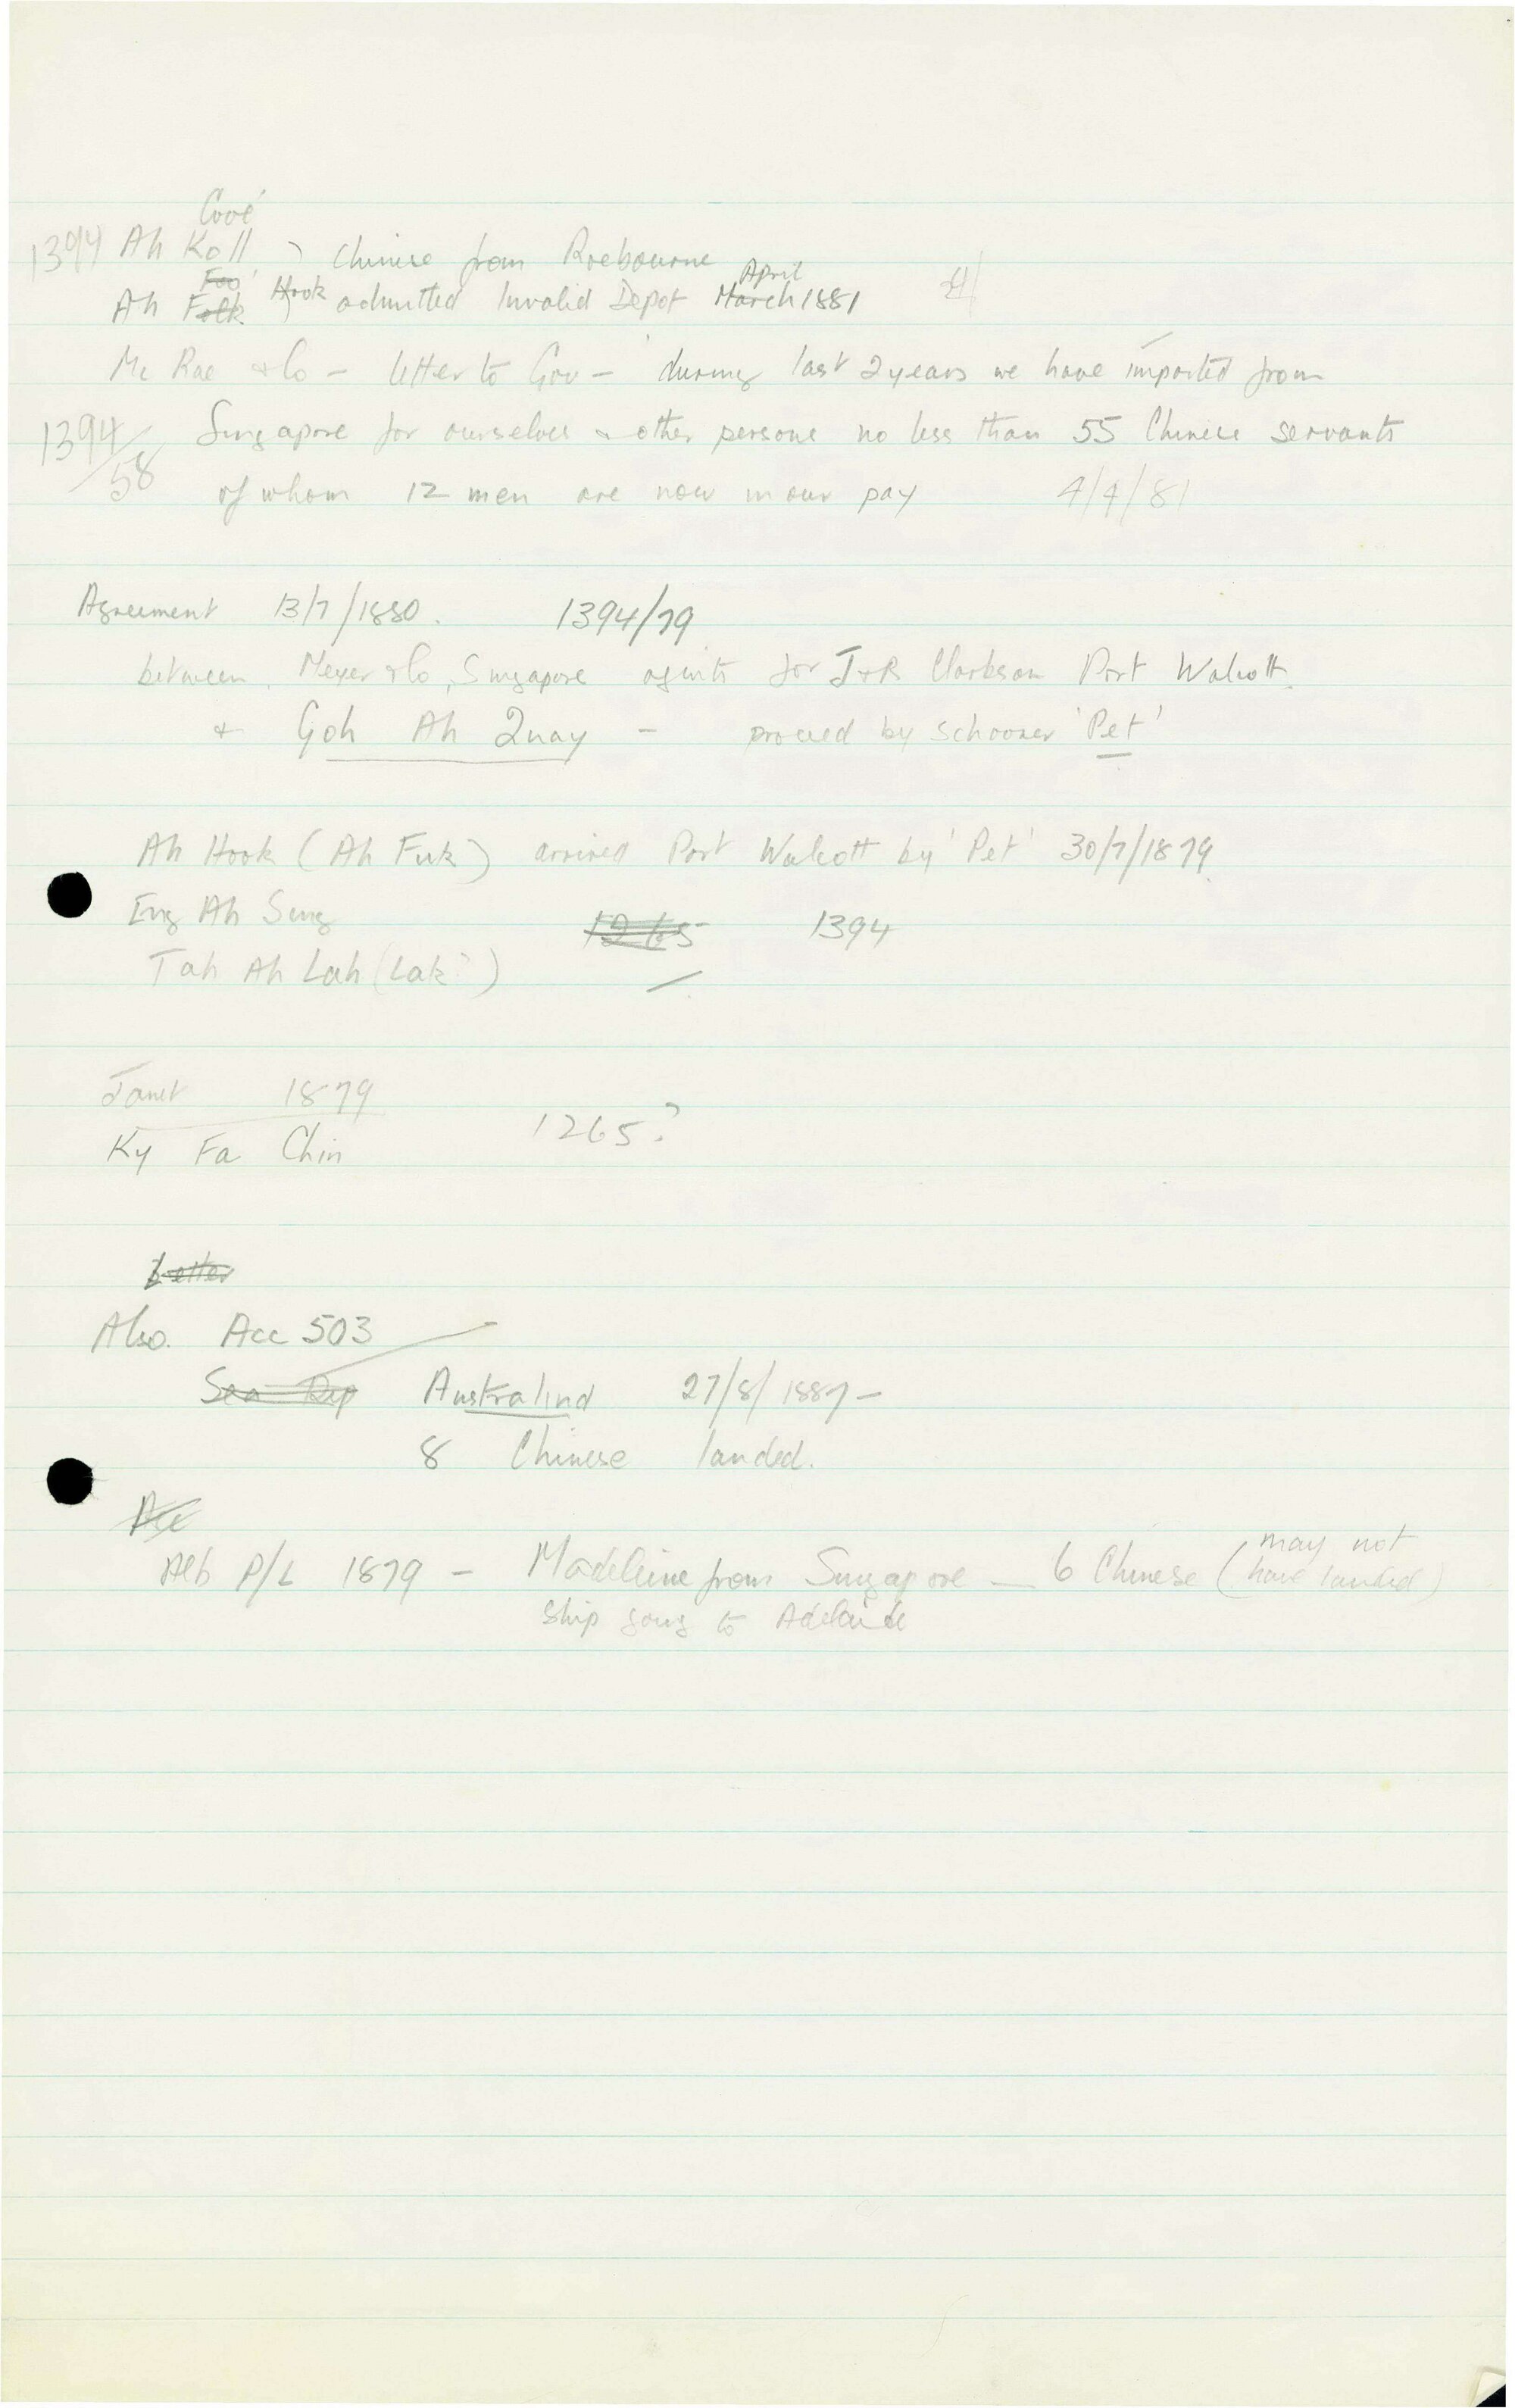 Cooé
1394 Ah Koll ) Chinese from Roebourne
Foo' Hook April
Ah Folk ) admitted Invalid Depot March 1881
Mc Rae & Co - letter to Gov - during last 2 years we have imported from
1394/58 Singapore for ourselves & other persons no less than 55 Chinese servants
of whom 12 men are now in our pay 4/4/81
Agreement 13/7/1880. 1394/79
between Meyer & Co, Singapore agents for J & R Clarkson Port Walcott.
& Goh Ah Quay - proceed by schooner 'Pet'
Ah Hook (Ah Fuk) arrived Port Walcott by 'Pet' 30/7/1879
Eng Ah Sing 1265 1394
Tah Ah Lah (Lak?)
Janet 1879
Ky Fa Chin 1265?
Letter
Also. Acc 503
Sea Dep Australind 27/8/1887 -
8 Chinese landed.
Acc
Alb P/L 1879 - Madeleine from Singapore - 6 Chinese (may not have landed)
ship going to Adelaide